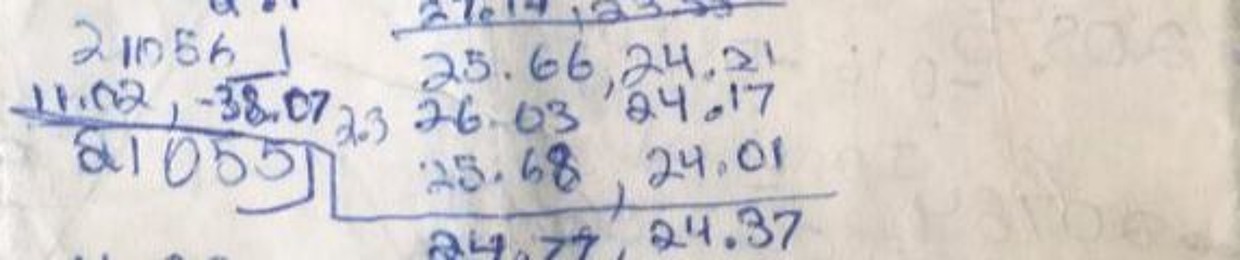 211056 1
11.02, -38.07 2.3
21055
25.66, 24.21
26.03 24.17
25.68, 24.01
24.77, 24.37